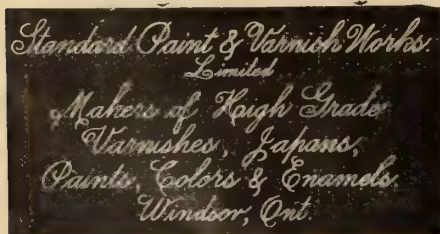 Standard Paint & Varnish Works
Limited
Makers of High Grade
Varnishes, Japans,
Paints, Colors & Enamels.
Windsor, Ont.